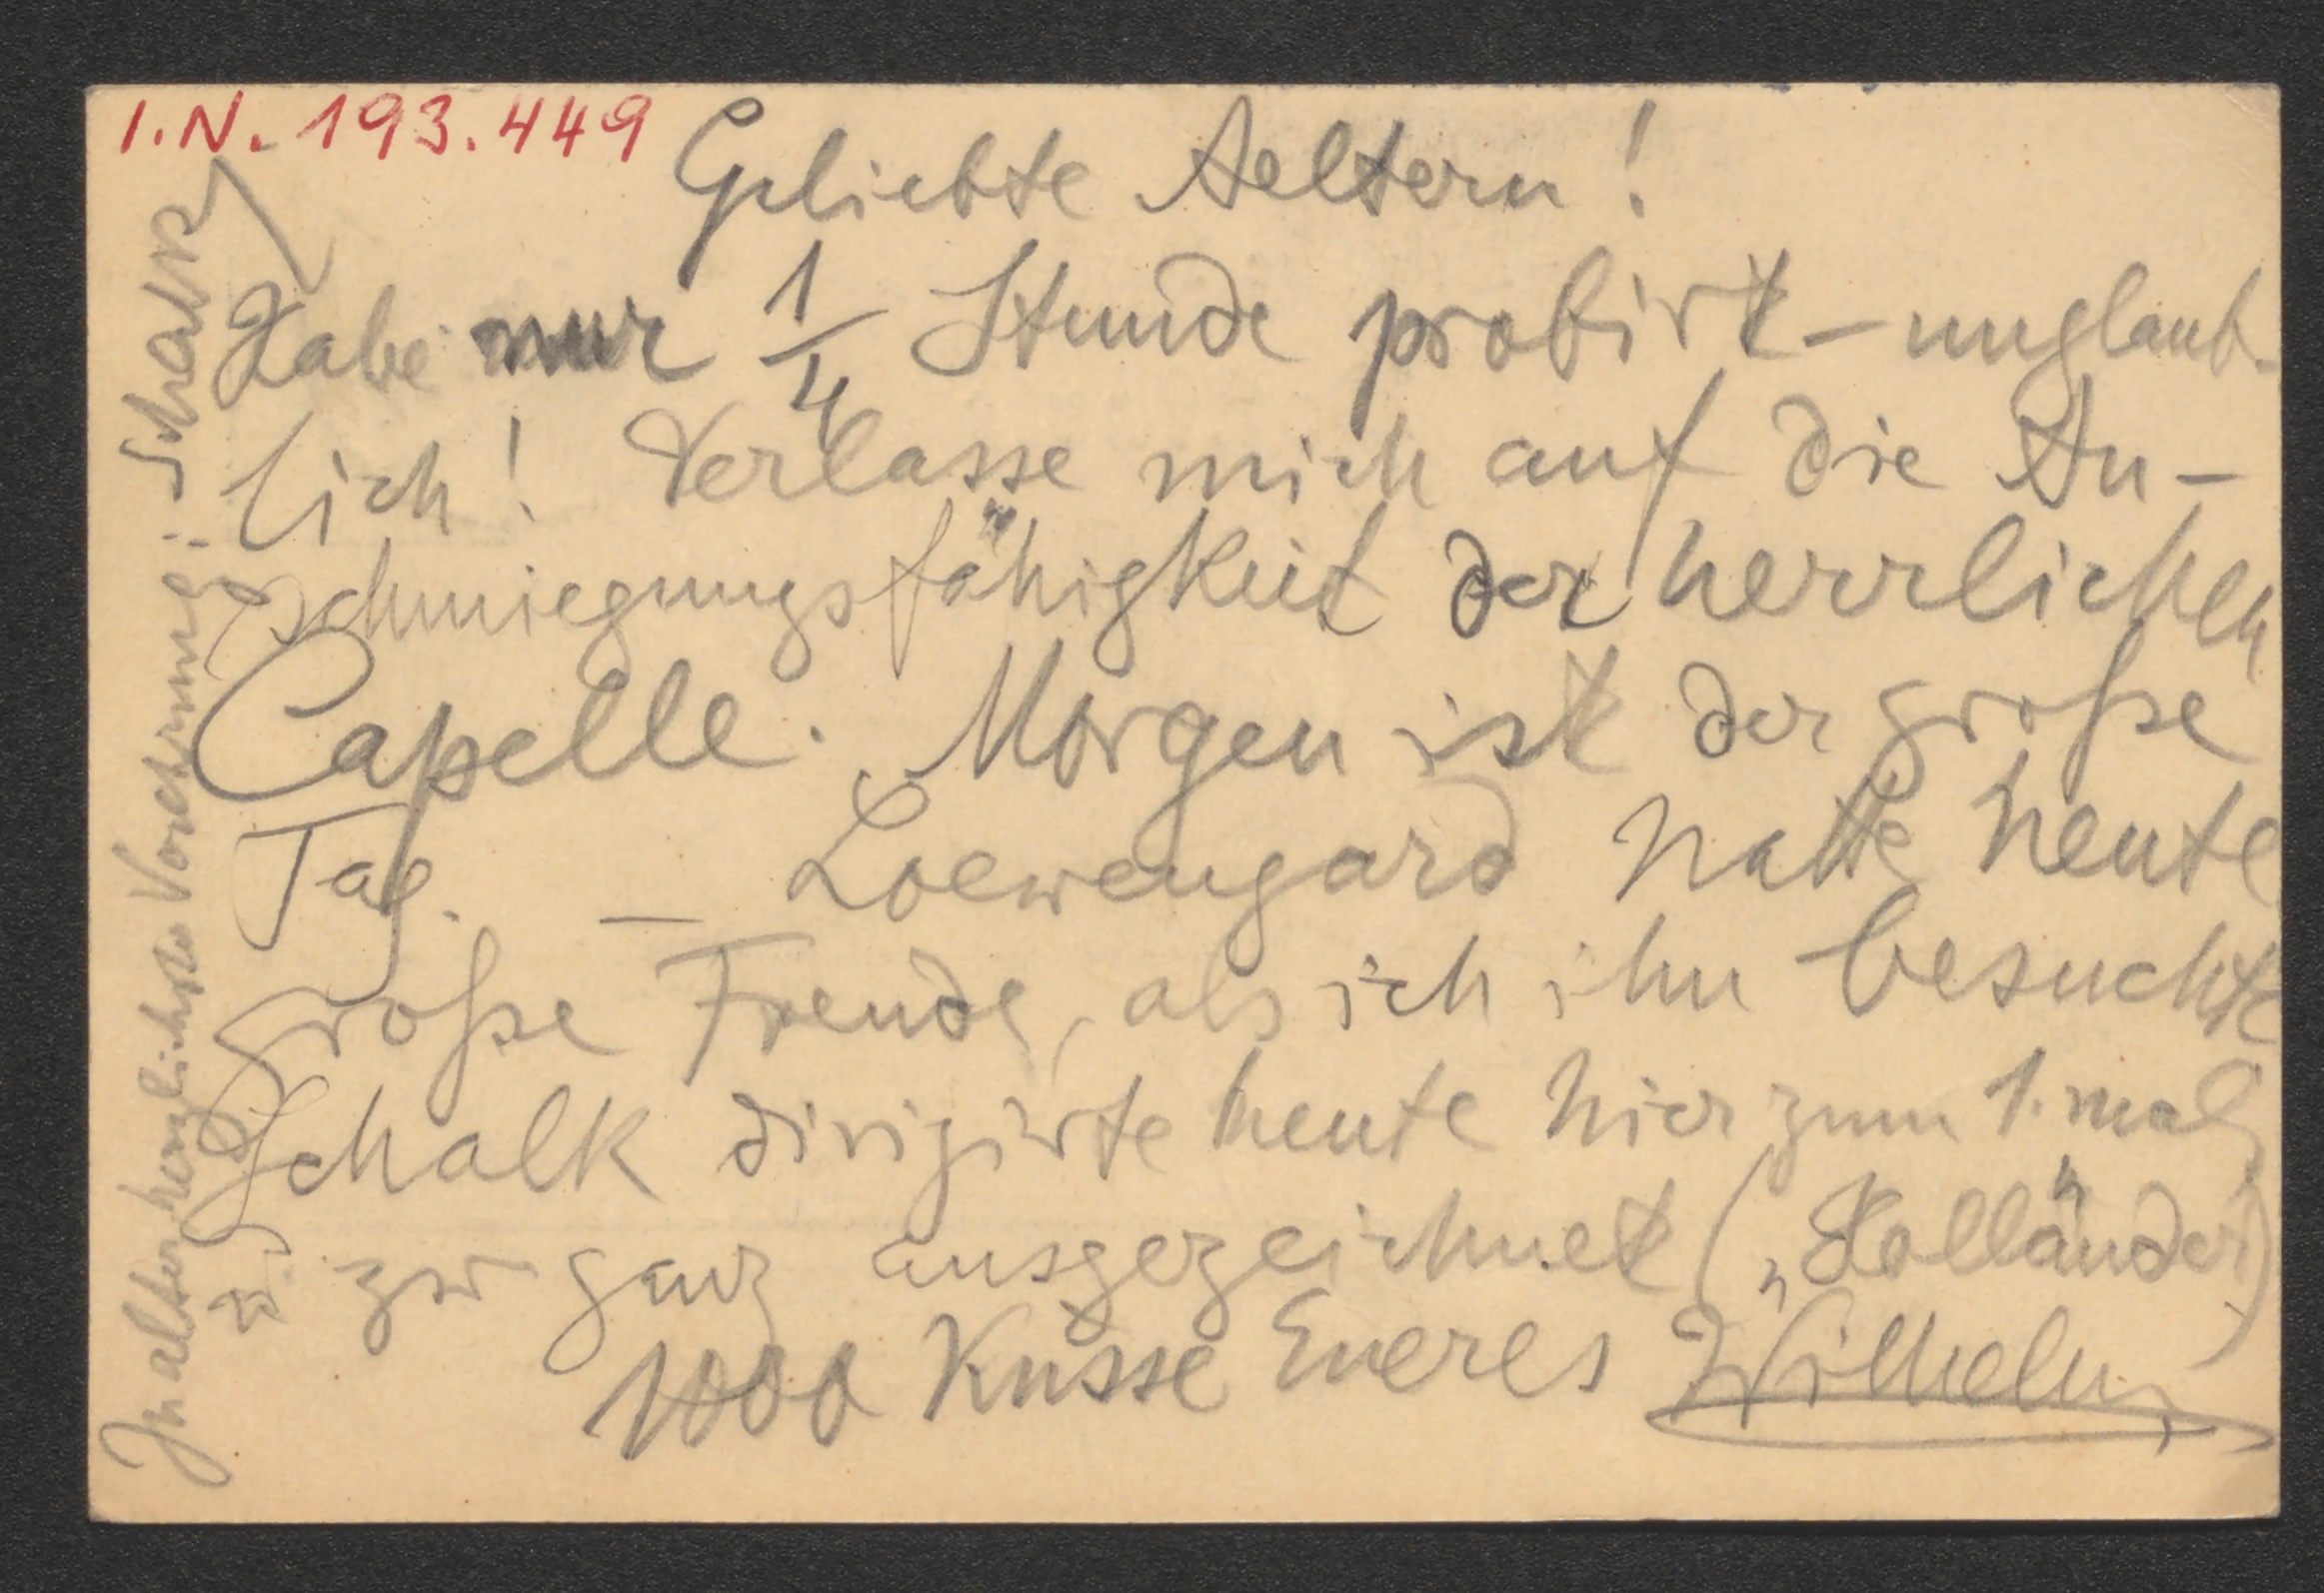 I.N. 193.449
Geliebte Aeltern!
Habe nur 1/4 Stunde probirt – unglaub-
lich! Verlasse mich auf die An-
schmiegungsfähigkeit der herrlichen
Capelle. Morgen ist der große
Tag. — Loewengard hatte heute
große Freude, als ich ihn besuchte
Schalk dirigirte heute hier zum 1. mal,
u. zw ganz ausgezeichnet („Holländer")
1000 Küsse Eueres Wilhelm
In alter herzlichster Verehrung: Schalk